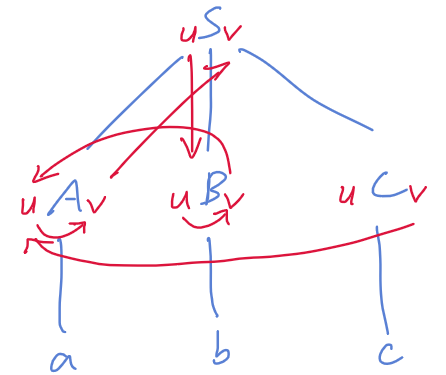 uSv
uAv uBv uCv
a b c